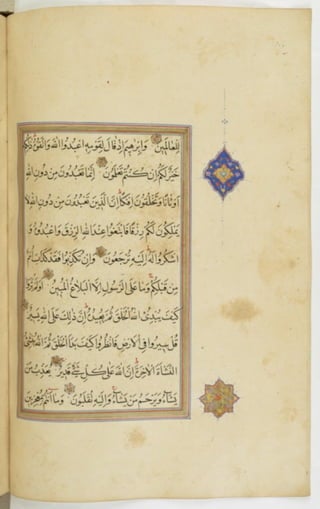 للعالمين وابرهيم اذ قال لقومه اعبدوا الله واتقوه ذلكم
خير لكم ان كنتم تعلمون انما تعبدون من دون الله
اوثانا وتخلقون افكا ان الذين تعبدون من دون الله لا
يملكون لكم رزقا فابتغوا عند الله الرزق واعبدوه و
اشكروا له اليه ترجعون وان تكذبوا فقد كذب امم
من قبلكم وما على الرسول الا البلاغ المبين اولم يروا
كيف يبدئ الله الخلق ثم يعيده ان ذلك على الله يسير
قل سيروا في الارض فانظروا كيف بدا الخلق ثم الله ينشئ
النشاة الاخرة ان الله على كل شئ قدير يعذب من
يشاء ويرحم من يشاء واليه تقلبون وما انتم بمعجزين